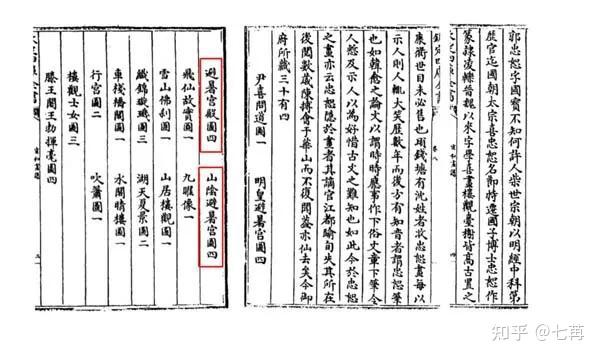 郭忠恕字國寶不知何許人柴世宗朝以明經中科第
歷官迄國朝太宗喜忠恕名節特遷國子博士忠恕作
篆隸凌轢晉魏以來字學喜畫樓觀臺榭皆高古置之
欽定四庫全書
康衢世目未必售也頃錢塘有沈姓者收忠恕畫每以
示人則人輒大笑歷數年而後方有知音者謂忠恕筆
也如韓愈之論文以謂時時應事作下俗文章下筆令
人慙及示人以為好惜古文之難知也如此今於忠恕
之畫亦云忠恕隱於畫者其謫官江都逾旬失其所在
後閱數歲陳摶會于華山而不復聞蓋亦仙去矣今御
府所藏三十有四
尹喜問道圖一 明皇避暑宫圖四
避暑宫殿圖四 山陰避暑宫圖四
飛仙故實圖一 九曜像一
雪山佛刹圖一 山居樓觀圖一
織錦璇璣圖三 湖天夏景圖二
車棧橋閣圖一 水閣晴樓圖一
行宫圖二 吹簫圖一
樓觀士女圖三
滕王閣王勃揮毫圖四
宣和畫譜
知乎 @七苒